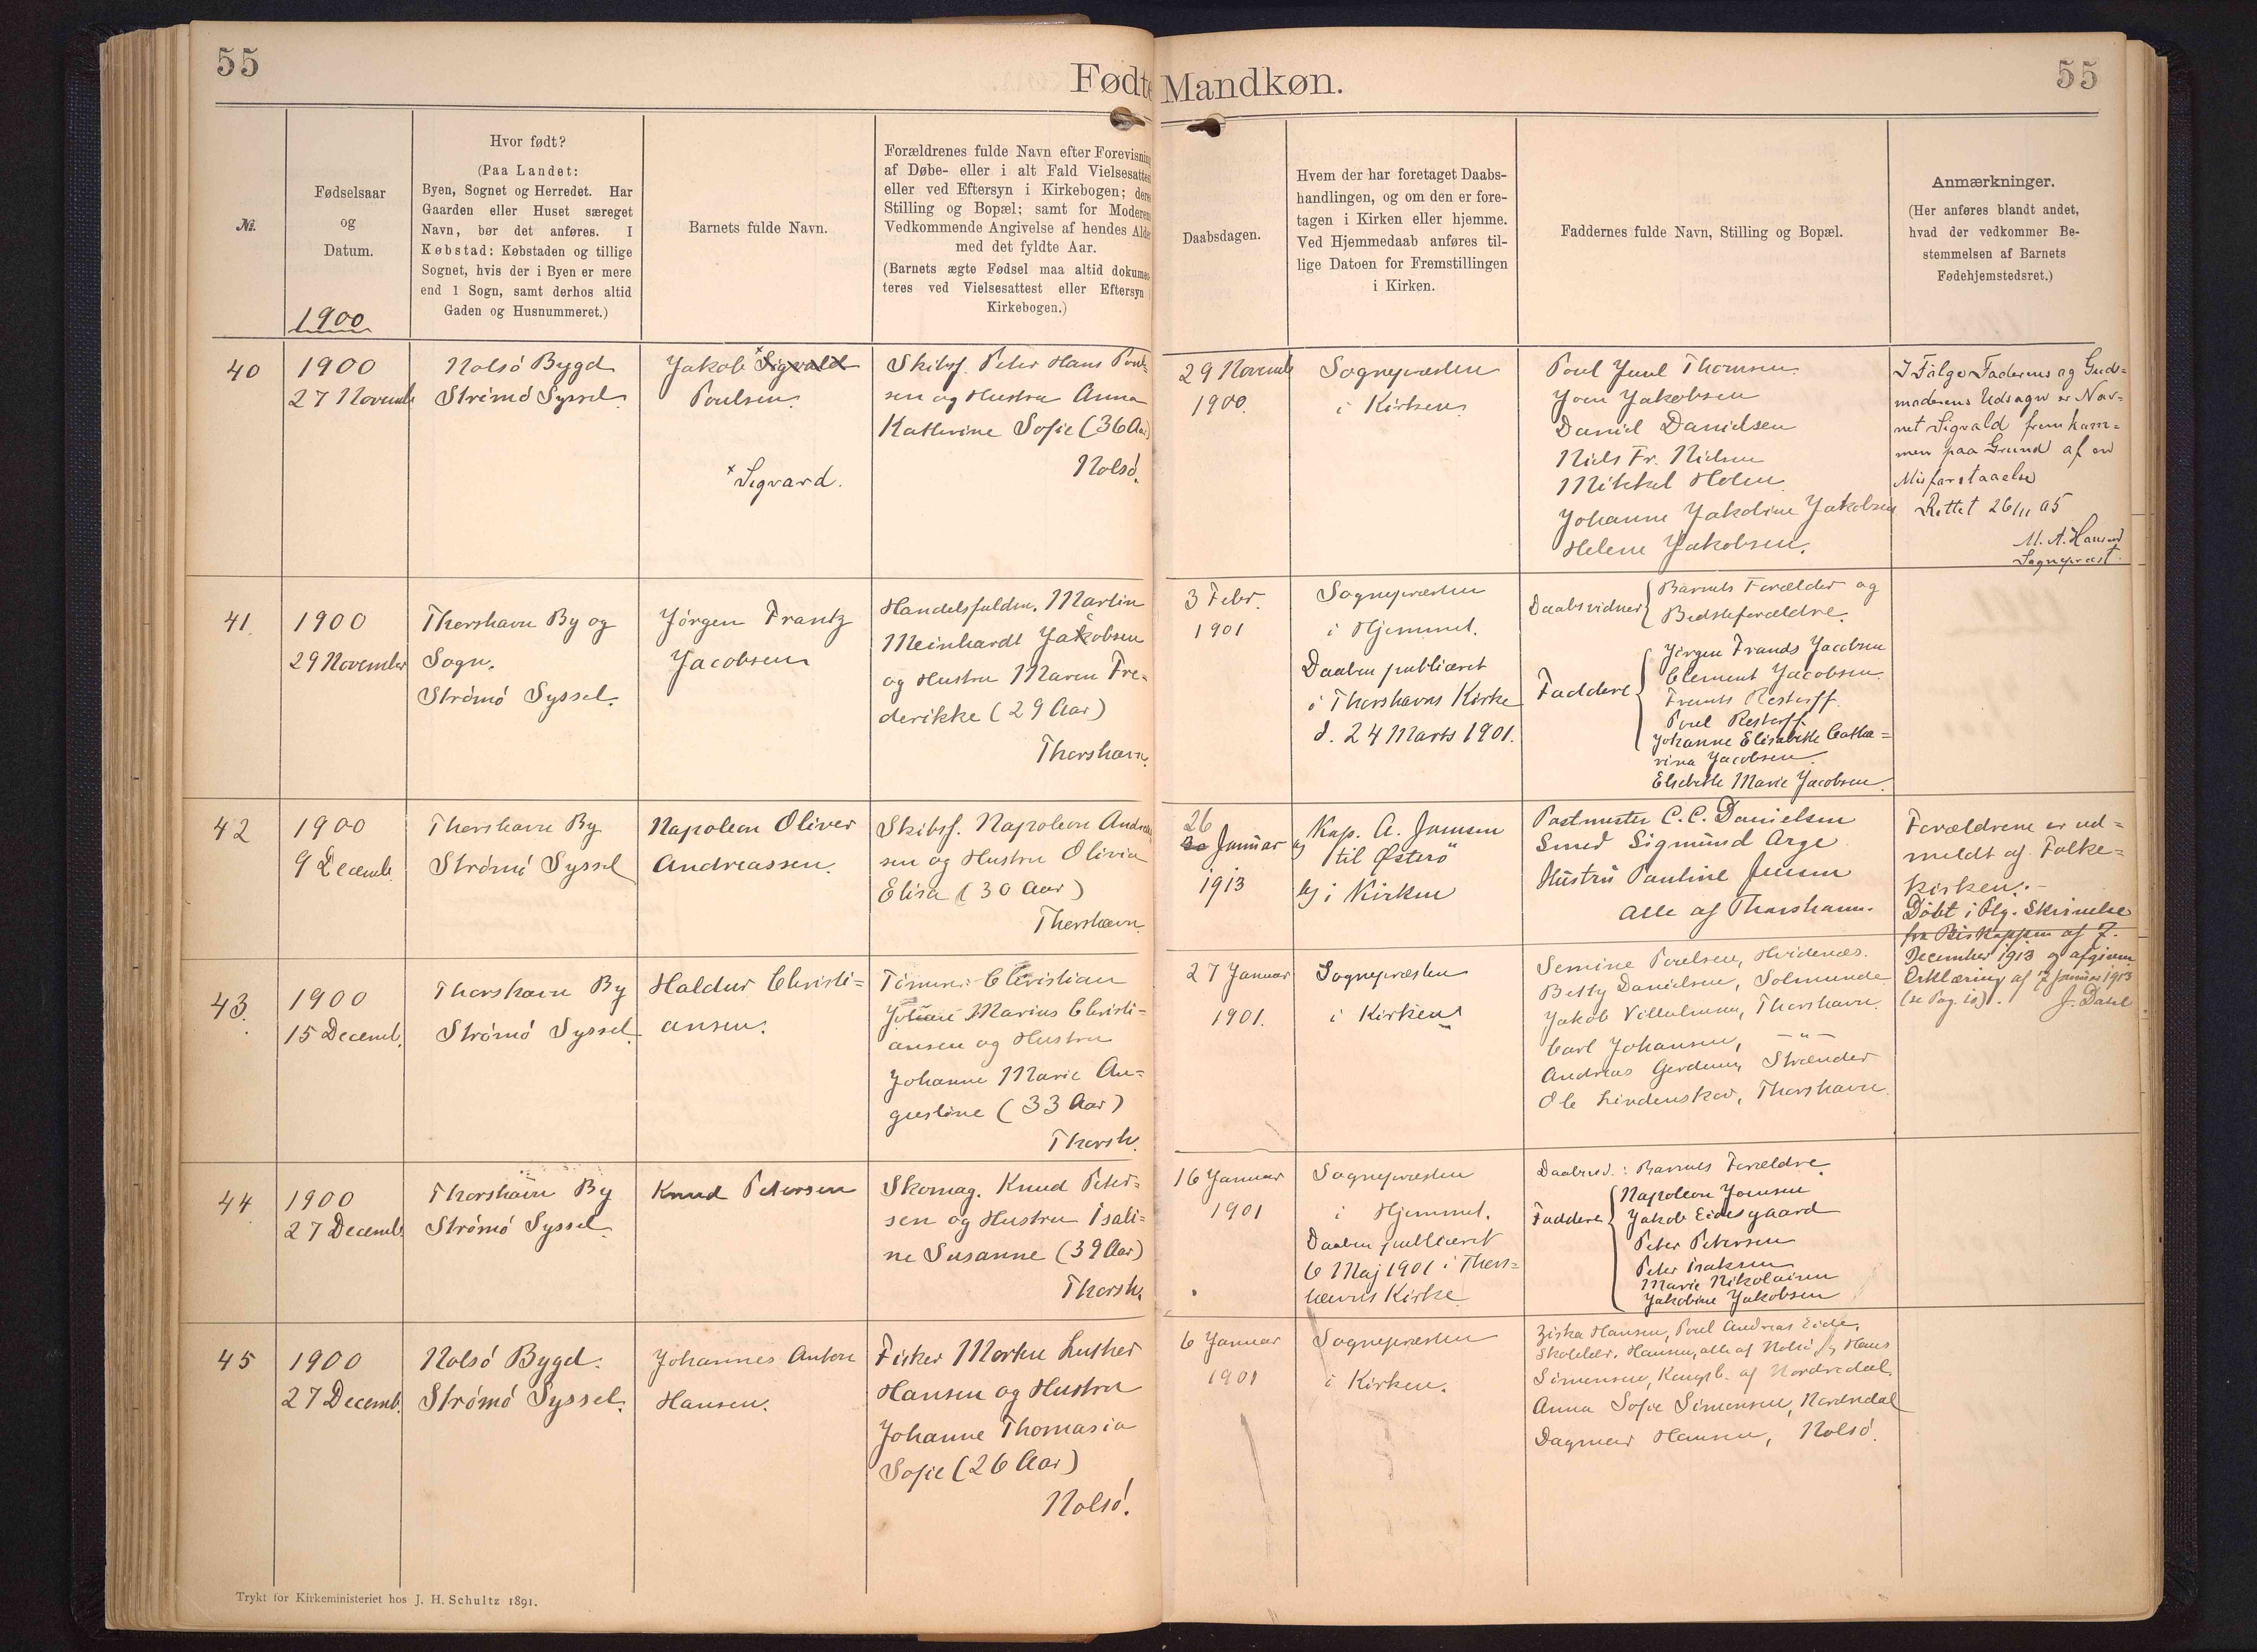 55
Fødte Mandkøn.
55
№.
Fødselsaar
og
Datum.
1900
Hvor født?
(Paa Landet:
Byen, Sognet og Herredet. Har
Gaarden eller Huset særeget
Navn, bør det anføres. I
Købstad: Købstaden og tillige
Sognet, hvis der i Byen er mere
end 1 Sogn, samt derhos altid
Gaden og Husnummeret.)
Barnets fulde Navn.
Forældrenes fulde Navn efter Forevisning
af Døbe- eller i alt Fald Vielsesattest
eller ved Eftersyn i Kirkebogen; deres
Stilling og Bopæl; samt for Moderens
Vedkommende Angivelse af hendes Alder
med det fyldte Aar.
(Barnets ægte Fødsel maa altid dokumen
teres ved Vielsesattest eller Eftersyn i
Kirkebogen.)
Daabsdagen.
Hvem der har foretaget Daabs-
handlingen, og om den er fore-
tagen i Kirken eller hjemme.
Ved Hjemmedaab anføres til-
lige Datoen for Fremstillingen
i Kirken.
Faddernes fulde Navn, Stilling og Bopæl.
Anmærkninger.
(Her anføres blandt andet,
hvad der vedkommer Be-
stemmelsen af Barnets
Fødehjemstedsret.)
40
1900
27 Novemb
Nolsö Bygd
Strömö Syssel.
Jakob Sigvald
Poulsen.
× Sigvard.
Skibsf. Peter Hans Poul-
sen og Hustru Anna
Katherine Sofie (36 Aar)
Nolsö.
29 Novemb
1900.
Sognepræsten
i Kirken.
Poul Juul Thomsen
Joen Jakobsen
Daniel Danielsen
Niels Fr. Nielsen
Mikkel Holm
Johanne Jakobine Jakobsen
Helene Jakobsen.
I Følge Faderens og Gud-
moderens Udsagn er Nav-
net Sigvald fremkom-
men paa Grund af en
Misforstaaelse
Rettet 26/11 05
M. A. Hansen
Sognepræst.
41.
1900
29 November
Thorshavn By og
Sogn.
Strömö Syssel.
Jörgen Frantz
Jacobsen
Handelsfuldm. Martin
Meinhardt Jakobsen
og Hustru Maren Fre-
derikke (29 Aar)
Thorshavn.
3 Febr.
1901
Sognepræsten
i Hjemmet.
Daaben publiceret
i Thorshavns Kirke
d. 24 Marts 1901.
Daabsvidner Barnets Forælder og
Bedsteforældre.
Faddere
Jörgen Frands Jacobsen
Clement Jacobsen
Frants Restorff.
Poul Restorff.
Johanne Elisabeth Catha=
rina Jacobsen.
Elsebeth Marie Jacobsen.
42
1900
9 Decemb.
Thorshavn By
Strömö Syssel
Napoleon Oliver
Andreassen.
Skibsf. Napoleon Andreas
sen og Hustru Olivia
Elisa (30 Aar)
Thorshavn.
26
Januar
1913
Kap. A. Jensen
til Østerö
i Kirken
Postmester C. C. Danielsen
Smed Sigmund Arge
Hustru Pauline Jensen
alle af Thorshavn.
Forældrene er ud=
meldt af Folke=
kirken.
Döbt i Flg. Skrivelse
fra Biskoppen af 7.
December 1913 og afgiven
Erklæring af 17 Januar 1913
(se Pag. 10). J. Dahl
43.
1900
15 Decemb.
Thorshavn By
Strömö Syssel.
Haldur Christi=
ansen.
Tömrer Christian
Marius Christi=
ansen og Hustru
Johanne Marie Au=
gustine (33 Aar)
Thorsh.
27 Januar
1901.
Sognepræsten
i Kirken
Semine Poulsen, Hvidenæs.
Betty Danielsen, Solmunde
Jakob Villulmun, Thorshavn.
Carl Johansen, — " —
Andreas Gerdum, Strænder
Ole Lindenskov, Thorshavn.
44
1900
27 Decemb.
Thorshavn By
Strömö Syssel.
Knud Petersen
Skomag. Knud Peter-
sen og Hustru Isali=
ne Susanne (39 Aar)
Thorsh.
16 Januar
1901
Sognepræsten
i Hjemmet.
Daaben publiceret
6 Maj 1901 i Thors=
havns Kirke.
Daabsvid.: Barnets Forældre.
Faddere
Napoleon Joensen
Jakob Eidesgaard
Peter Petersen
Peter Isaksen
Marie Nikolaisen
Jakobine Jakobsen
45
1900
27 Decemb.
Nolsö Bygd.
Strömö Syssel.
Johannes Anton
Hansen.
Fisker Morten Luther
Hansen og Hustru
Johanne Thomasia
Sofie (26 Aar)
Nolsö.
6 Januar
1901
Sognepræsten
i Kirken.
Ziska Hansen, Poul Andreas Eide,
Hansen, alle af Nolsö, Hans
Simonsen, Kongsb. af Nordredal.
Anna Sofie Simonsen, Nordredal
Dagmar Hansen, Nolsö.
Trykt for Kirkeministeriet hos J. H. Schultz 1891.